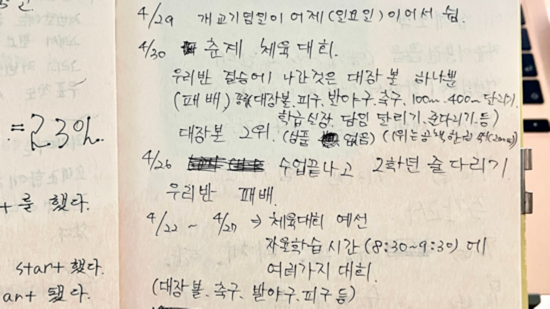 = 2.3%.
를 했다.
start 했다.
start 됐다.
4/29 개교기념일이 어제 (일요일) 이어서 쉼
4/30 춘제 체육대회.
우리반 결승에 나간것은 대장볼 하나뿐
(패배) 대장볼.피구.발야구.축구.100m.400m 달리기.
학습실장, 담임 달리기.줄다리기.등)
대장볼 2위. (상품 없음)
4/26 수업끝나고 2학년 줄다리기
우리반 패배.
4/22 ~ 4/27 → 체육대회 예선
자율학습 시간 (8:30~9:30) 에
여러가지 대회.
(대장볼.축구.발야구.피구 등)